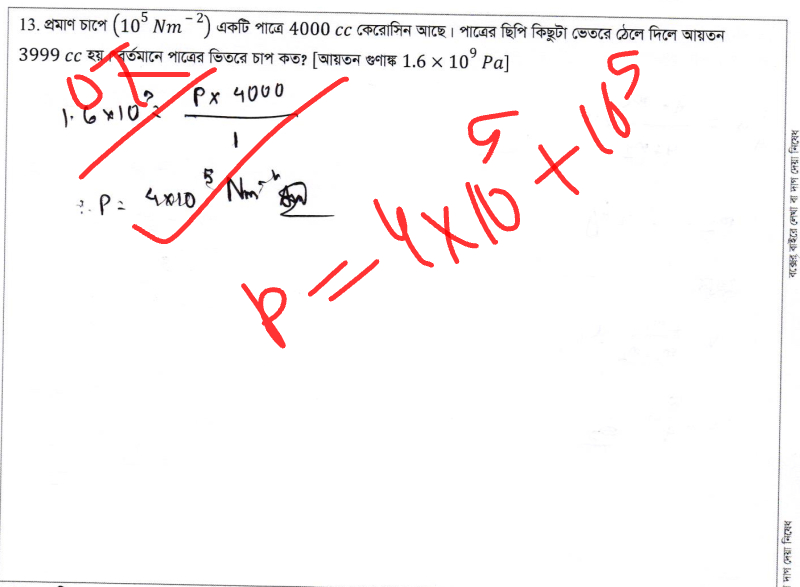 13. প্রমাণ চাপে (10⁵ Nm⁻²) একটি পাত্রে 4000 cc কেরোসিন আছে। পাত্রের ছিপি কিছুটা ভেতরে ঠেলে দিলে আয়তন
3999 cc হয়। বর্তমানে পাত্রের ভিতরে চাপ কত? [আয়তন গুণাঙ্ক 1.6 × 10⁹ Pa]
OK
1.6×10⁹ = P × 4000 / 1
∴ P = 4×10⁵ Nm⁻²
P = 4×10⁵ + 10⁵
বক্সের বাইরে লেখা বা দাগ দেয়া নিষেধ
দাগ দেয়া নিষেধ